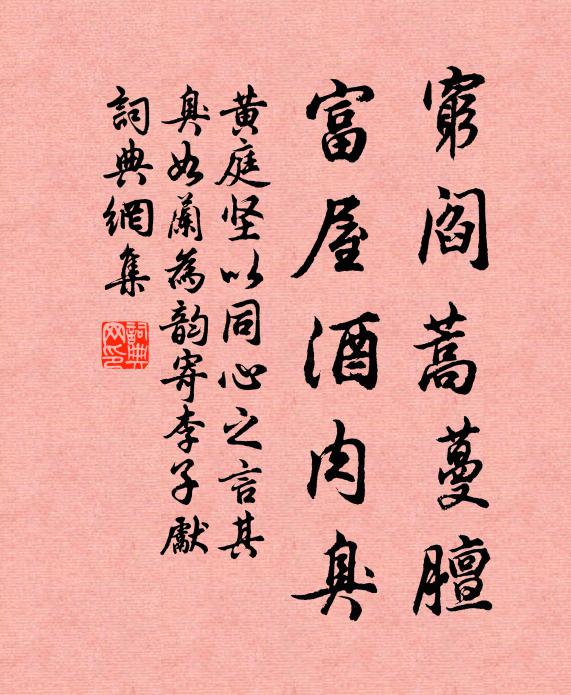 窮閻蒿蔓膻
富屋酒肉臭
黄庭坚以同心之言其
臭如蘭為韵寄李子獻
詞典網集
詞典网印